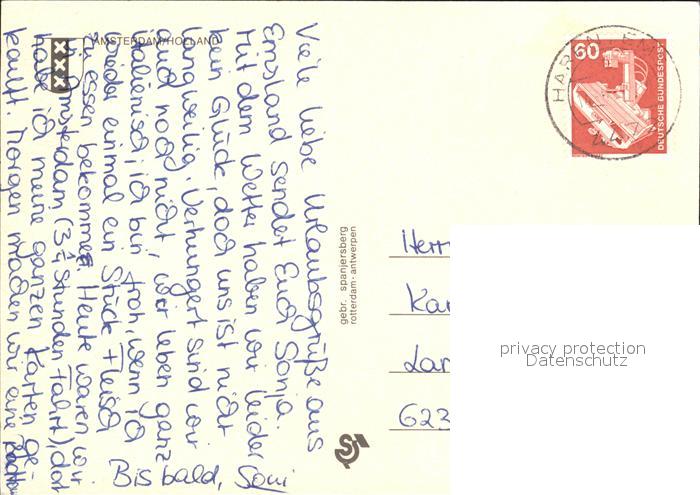 AMSTERDAM/HOLLAND
Viele liebe Urlaubsgrüße aus
Emsland sendet Euch Sonja.
Mit dem Wetter haben wir leider
kein Glück, doch uns ist nicht
langweilig. Verhungert sind wir
auch noch nicht, wir leben ganz
italienisch, ich bin froh, wenn ich
wieder einmal ein Stück Fleisch
zu essen bekomme. Heute waren wir
in Amsterdam (3 1/4 Stunden Fahrt), dort
habe ich meine ganzen Karten ge-
kauft. Morgen machen wir eine
Bis bald, Soni
gebr. spanjersberg
rotterdam - antwerpen
60
DEUTSCHE BUNDESPOST
HAREN, EM
Herr
Kar
Lar
623
privacy protection
Datenschutz